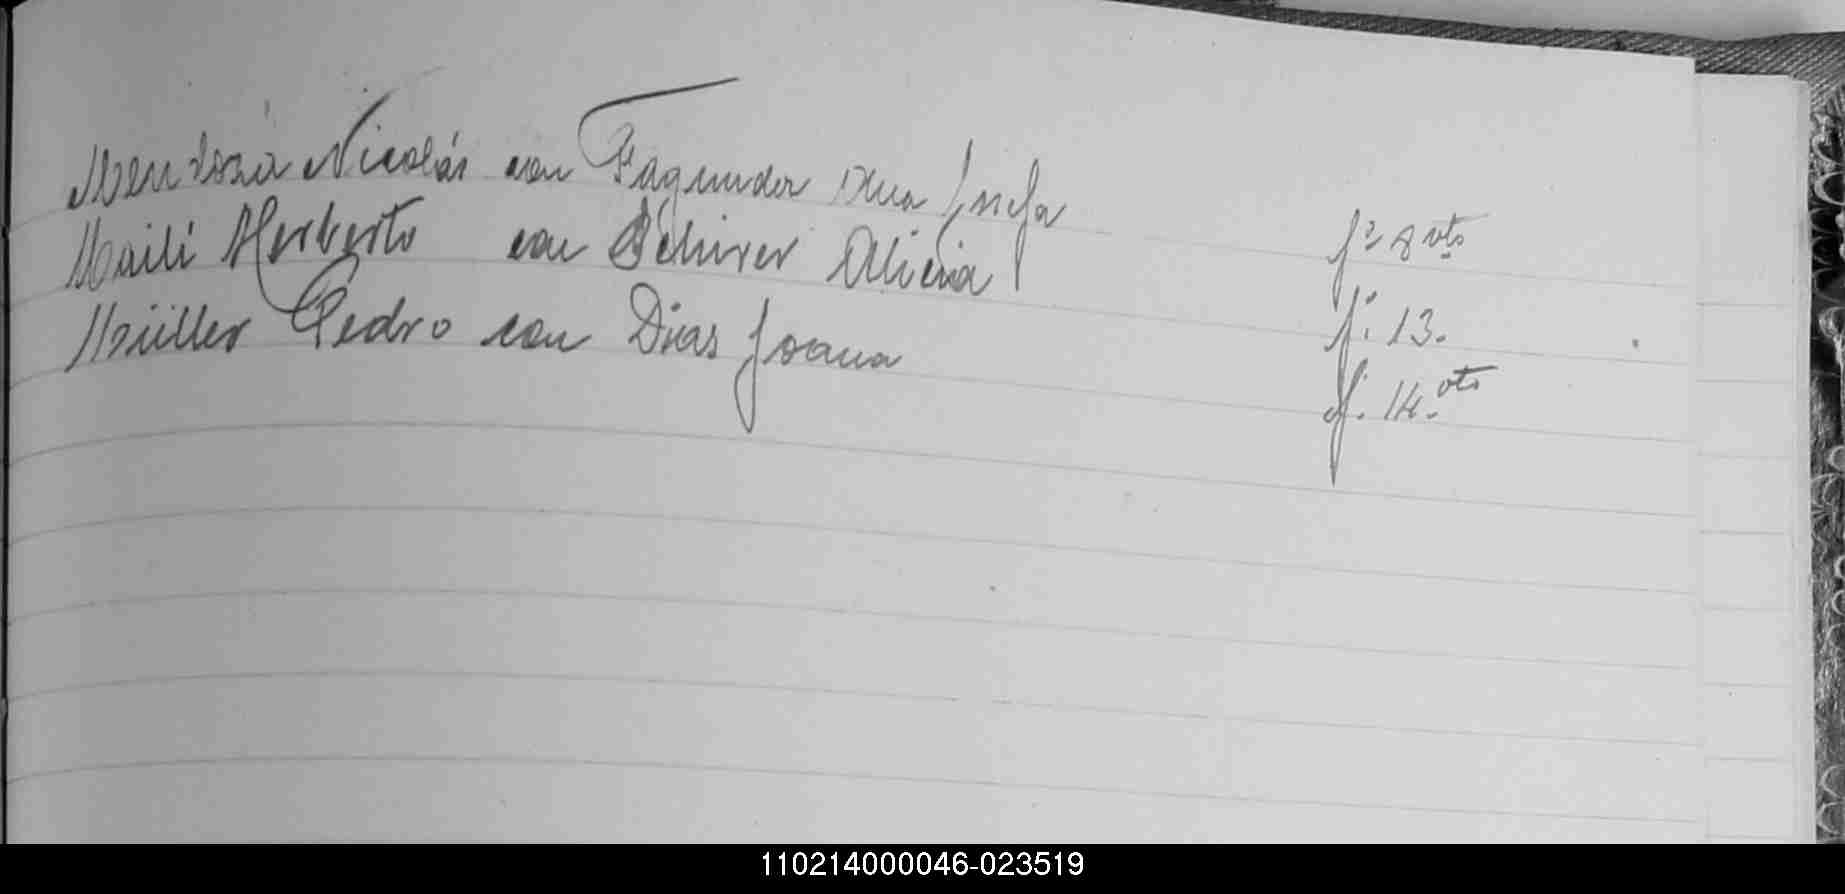 Mendoza Nicolás con Fagundez Ana Josefa fº 8 vto
Maili Herberto con Schirer Alicia f. 13.
Müller Pedro con Dias Joana f. 14. vto
110214000046-023519